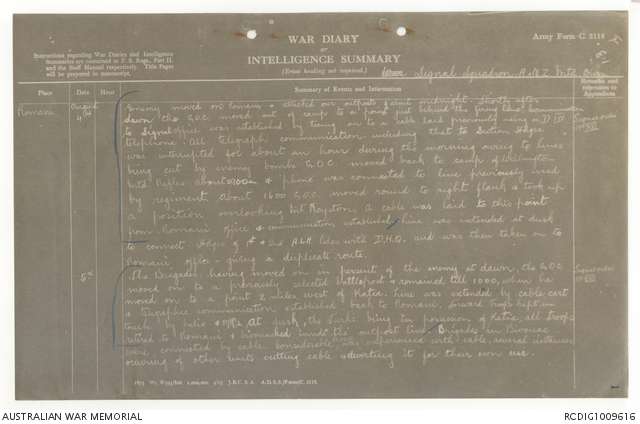 WAR DIARY
or
INTELLIGENCE SUMMARY
(Erase heading not required.)
Army Form C 2118
Instructions regarding War Diaries and Intelligence
Summaries are contained in F. S. Regs., Part II.
and the Staff Manual respectively. Title Pages
will be prepared in manuscript.
Signal Squadron, A & NZ Mtd Div
Place
Date
Summary of Events and Information
Remarks and
references to
Appendices
Romani
August
4th
Enemy moved on Romani & attacked our outposts about midnight. Shortly after
dawn the G.O.C. moved out of camp to a point just behind the firing line & communication
to Signal office was established by teeing on to a cable laid previously using a D III
telephone. All telegraph communication including that to Section
was interrupted for about an hour during the morning owing to lines
being cut by enemy bombs. G.O.C. moved back to camp of Wellington
Mtd Rifles about & phone was connected to line previously used
by regiment. About 1600 G.O.C. moved round to right flank & took up
a position overlooking Mt Royston. A cable was laid to this point
from Romani office & communication established, line was extended at dusk
to connect Hqrs of 1st & 2nd A.L.H. Bdes with D.H.Q. and was then taken on to
Romani office - giving a duplicate route.
5th
The Brigades having moved on in pursuit of the enemy at dawn, the G.O.C
moved on to a previously selected Battlepost & remained till 1000, when he
moved on to a point 2 miles west of Katia. Line was extended by cable cart
& telephone communication established back to Romani, Inward troops kept in
touch by helio & D.R's. At dusk, the Turks being in possession of Katia, all troops
retired to Romani & bivouacked inside the outpost line. Brigades in Bivouac
were connected by cable. Considerable was experienced with cable, several instances
occurring of other units cutting cable & diverting it for their own use.
1875 Wt. W593/826 1,000,000 4/15 J.B.C. & A. A.D.S.S./Forms/C. 2118.
AUSTRALIAN WAR MEMORIAL
RCDIG1009616